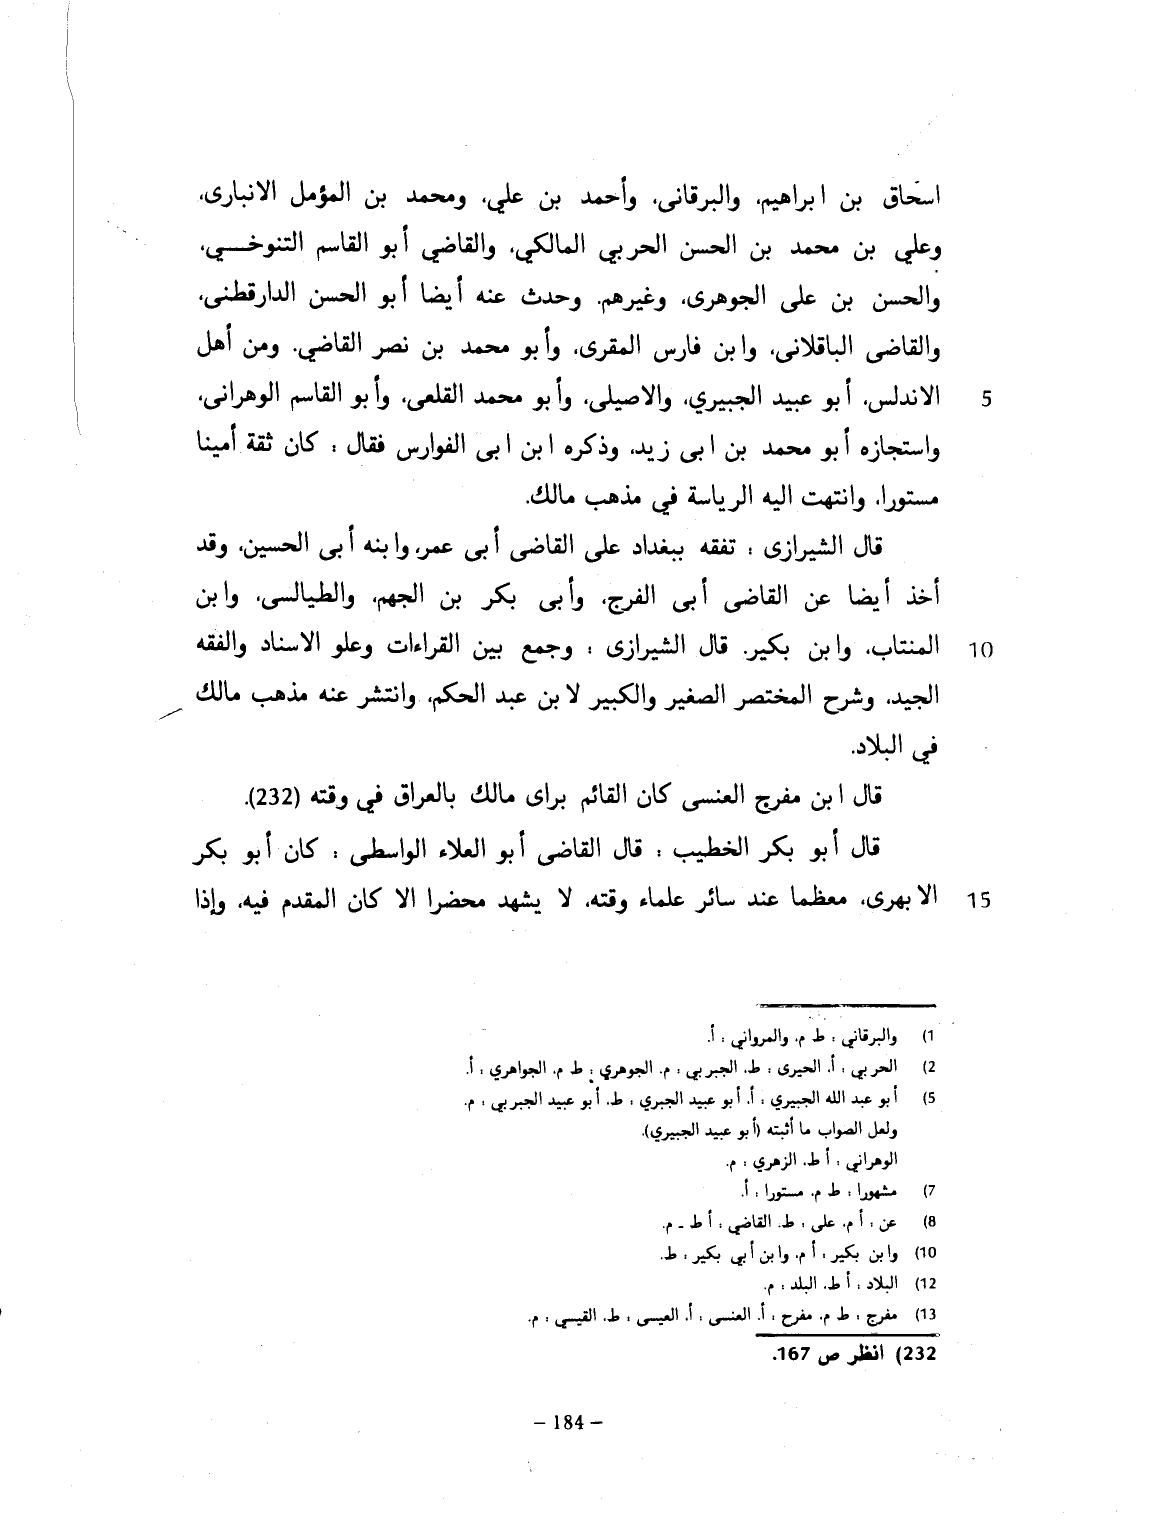 اسحاق بن ابراهيم، والبرقانى، وأحمد بن علي، ومحمد بن المؤمل الانبارى،
وعلي بن محمد بن الحسن الحربي المالكي، والقاضي أبو القاسم التنوخـــي،
والحسن بن على الجوهرى، وغيرهم. وحدث عنه أيضا أبو الحسن الدارقطنى،
والقاضى الباقلانى، وابن فارس المقرى، وأبو محمد بن نصر القاضي. ومن أهل
5 الاندلس، أبو عبيد الجبيري، والاصيلى، وأبو محمد القلعى، وأبو القاسم الوهرانى،
واستجازه أبو محمد بن ابى زيد، وذكره ابن ابى الفوارس فقال : كان ثقة أمينا
مستورا، وانتهت اليه الرياسة في مذهب مالك.
قال الشيرازى : تفقه ببغداد على القاضى أبى عمر، وابنه أبى الحسين، وقد
أخذ أيضا عن القاضى أبى الفرج، وأبى بكر بن الجهم، والطيالسى، وابن
10 المنتاب، وابن بكير. قال الشيرازى : وجمع بين القراءات وعلو الاسناد والفقه
الجيد، وشرح المختصر الصغير والكبير لابن عبد الحكم، وانتشر عنه مذهب مالك
في البلاد.
قال ابن مفرج العنسى كان القائم براى مالك بالعراق في وقته (232).
قال أبو بكر الخطيب : قال القاضى أبو العلاء الواسطى : كان أبو بكر
15 الابهرى، معظما عند سائر علماء وقته، لا يشهد محضرا الا كان المقدم فيه، وإذا
1) والبرقاني : ط م. والمرواني : أ.
2) الحربي : أ. الحيرى : ط. الجبربي : م. الجوهري : ط م. الجواهري : أ.
5) أبو عبد الله الجبيري : أ. أبو عبيد الجبري : ط. أبو عبيد الجبربي : م.
ولعل الصواب ما أثبته (أبو عبيد الجبيري).
الوهراني : أ ط. الزهري : م.
7) مشهورا : ط م. مستورا : أ.
8) عن : أ م. على : ط. القاضي : أ ط ـ م.
10) وابن بكير : أ م. وابن أبي بكير : ط.
12) البلاد : أ ط. البلد : م.
13) مفرج : ط م. مفرح : أ. العنسى : أ. العيسى : ط. القيسي : م.
232) انظر ص 167.
– 184 –